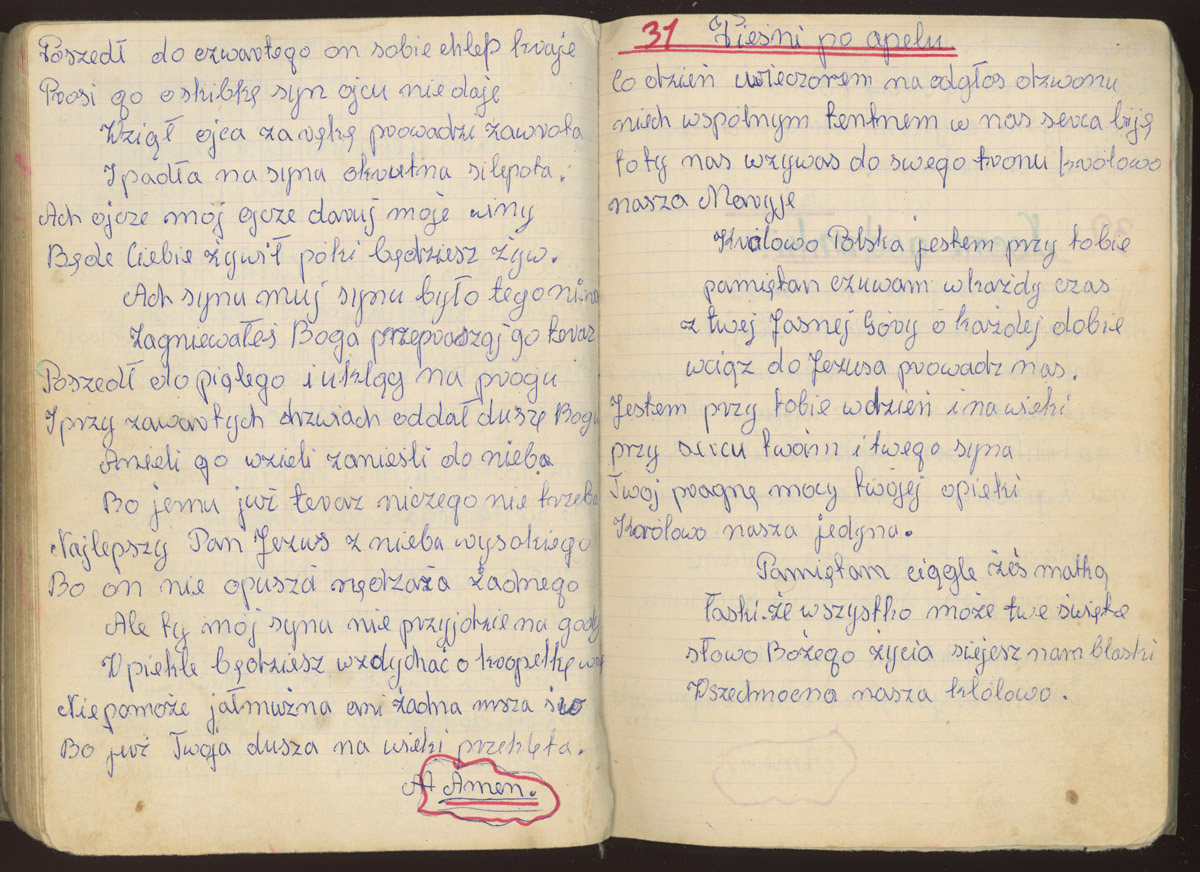 Poszedł do czwartego on sobie chlep kraje
Prosi go o skibkę syn ojcu nie daje
Wziął ojca za rękę prowadzi zawrota
I padła na syna okrutna silepota.
Ach ojcze mój ojcze daruj moje winy
Będe Ciebie żywił póki będziesz żyw.
Ach synu muj synu było tego
Zagniewałeś Boga przepraszaj go teraz
Poszedł do piątego i uklągł na progu
I przy zawartych drzwiach oddał duszę Bogu
Anieli go wzieli zanieśli do nieba
Bo jemu już teraz niczego nie trzeba
Najlepszy Pan Jezus z nieba wysokiego
Bo on nie opuszá nędzaża żadnego
Ale ty mój synu nie przyjdzie na gody
W piekle będziesz wzdychać o kropelkę
Niepomoże jałmużna ani żadna msza
Bo już Twoja dusza na wieki przeklęta.
At Amen.
31 Pieśni po apelu
Co dzień wieczorem na odgłos dzwonu
niech wspólnym tentnem w nas serca biję
to ty nas wzywas do swego tronu królowo
nasza Maryje
Królowo Polska jestem przy tobie
pamiętan czuwam w każdy czas
z twej Jasnej Góry o każdej dobie
wciąz do Jezusa prowadz nas.
Jestem przy tobie w dzień i na wieki
przy sercu twóim i twego syna
Twoj pragnę mocy twojej opieki
Królowo nasza jedyna.
Pamiętam ciągle żéś matką
łaski. że wszystko może twe święte
słowo Bożego życia siejesz nam blaski
Wszechmocna nasza klólowo.